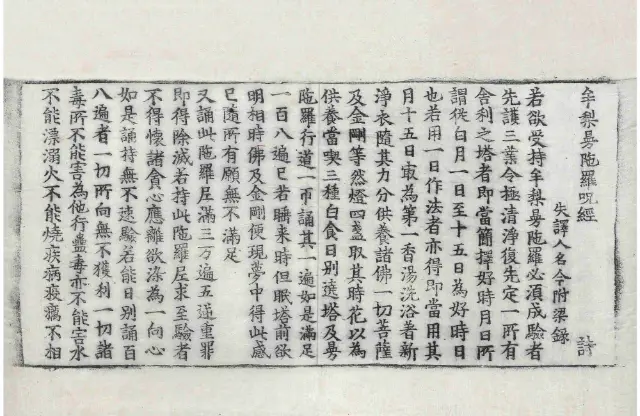 牟梨曼陁羅呪經 詩
失譯人名今附梁錄
若欲受持牟梨曼陁羅必須成驗者
先護三業令極清淨復先定一所有
舍利之塔者即當簡擇好時月日所
謂從白月一日至十五日為好時日
也若用一日作法者亦得即當用其
月十五日㝡為第一香湯洗浴著新
淨衣隨其力分供養諸佛一切菩薩
及金剛等然燈四盞取其時花以為
供養當喫三種白食日別遶塔及曼
陁羅行道一帀誦其一遍如是滿足
一百八遍已若睡来時但眠塔前欲
明相時佛及金剛便現夢中得此感
已隨所有願無不滿足
又誦此陁羅尼滿三万遍五逆重罪
即得除滅若持此陁羅尼求至驗者
不得懷諸貪心應離欲染為一向心
如是誦持無不速驗若能日別誦百
八遍者一切所向無不獲利一切諸
毒所不能害為他行蠱毒亦不能害水
不能漂溺火不能燒疾病疫癘不相